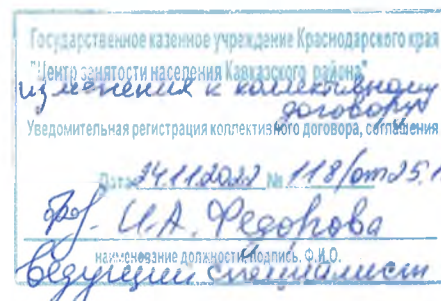 Государственное казенное учреждение Краснодарского края
"Центр занятости населения Кавказского района"
изменения к коллективному
договору
Уведомительная регистрация коллективного договора, соглашения
Дата 24.11.2022 № 118/от 25.1
И.А. Федорова
наименование должности, подпись, Ф.И.О.
ведущий специалист